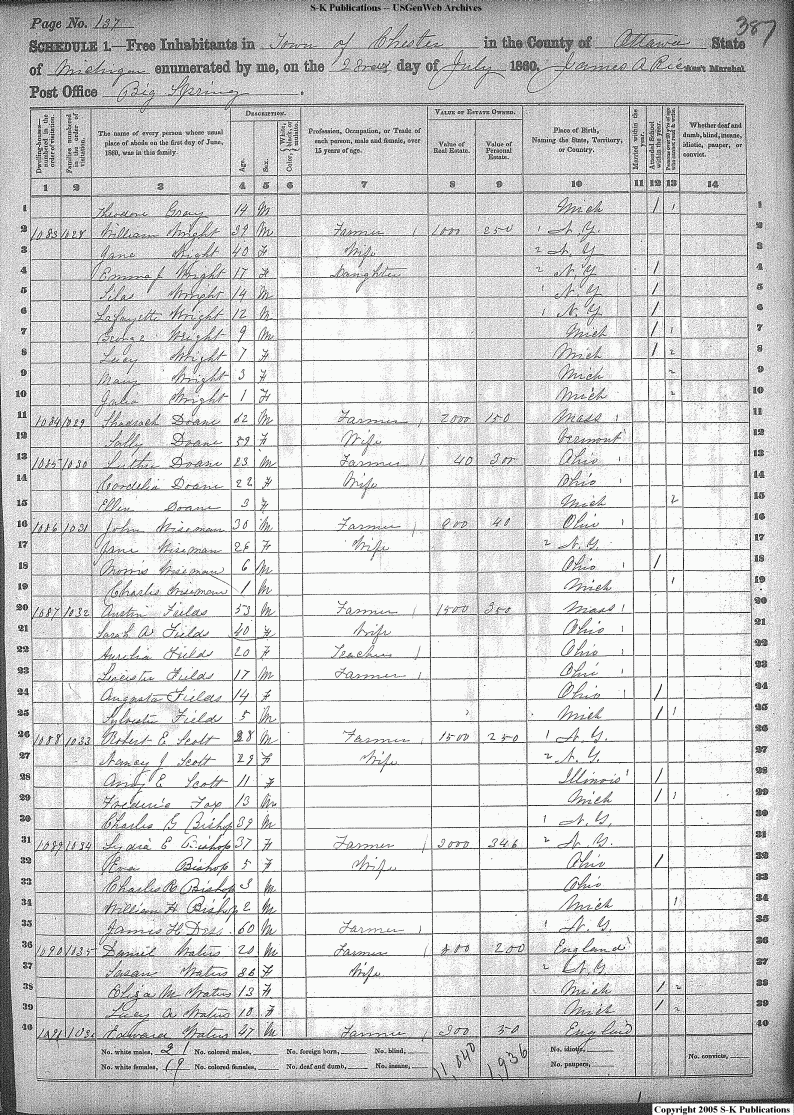 S-K Publications -- USGenWeb Archives
Page No. 137
387
SCHEDULE 1.—Free Inhabitants in Town of Chester in the County of Ottawa State
of Michigan enumerated by me, on the day of July 1860. James A Rice Ass't Marshal
Post Office Big Spring.
Dwelling-houses—numbered in the order of visitation.
Families numbered in the order of visitation.
The name of every person whose usual place of abode on the first day of June, 1860, was in this family.
DESCRIPTION.
Age.
Sex.
Color, {White, black, or mulatto.
Profession, Occupation, or Trade of each person, male and female, over 15 years of age.
VALUE OF ESTATE OWNED.
Value of Real Estate.
Value of Personal Estate.
Place of Birth, Naming the State, Territory, or Country.
Married within the year.
Attended School within the year.
Whether deaf and dumb, blind, insane, idiotic, pauper, or convict.
1 2 3 4 5 6 7 8 9 10 11 12 13 14
1 Theodore Gray 14 M Mich / 1 1
2 1083 1028 William Wright 39 M Farmer 1000 250 1 N.Y. 2
3 Jane Wright 40 F Wife 2 N.Y. 3
4 Emma J Wright 17 F Daughter 2 N.Y / 4
5 Silas Wright 14 M 1 N.Y / 5
6 Lafayette Wright 12 M 1 N.Y / 6
7 George Wright 9 M Mich / 1 7
8 Lucy Wright 7 F Mich / 2 8
9 Mary Wright 3 F Mich 2 9
10 Julia Wright 1 F Mich 2 10
11 1084 1029 Shadrach Doane 62 M Farmer 2000 150 Mass 11
12 Sally Doane 59 F Wife Vermont 12
13 1085 1030 Luther Doane 23 M Farmer 40 300 Ohio 13
14 Cordelia Doane 22 F Wife Ohio 14
15 Ellen Doane 3 F Mich 2 15
16 1086 1031 John Wiseman 30 M Farmer 40 Ohio 16
17 Jane Wiseman 26 F Wife 2 N.Y. 17
18 Morris Wiseman 6 M Ohio / 18
19 Charles Wiseman 1 M Mich 1 19
20 1087 1032 Austin Fields 53 M Farmer 1500 350 Mass 20
21 Sarah A Fields 40 F Wife Ohio 21
22 Aurelia Fields 20 F Teacher Ohio 22
23 Fields 17 M Farmer Ohio 23
24 Augusta Fields 14 F Ohio / 24
25 Sylvester Fields 5 M Mich / 1 25
26 1088 1033 Robert E Scott 28 M Farmer 1500 250 1 N.Y. 26
27 Nancy J Scott 29 F Wife 2 N.Y. 27
28 E Scott 11 F Illinois / 28
29 Frederic Fox 13 M Mich / 1 29
30 Charles G Bishop 39 M 1 N.Y. 30
31 1089 1034 Lydia E Bishop 37 F Farmer 3000 346 2 N.Y. 31
32 Eva Bishop 5 F Wife Ohio / 32
33 Charles R Bishop 3 M Ohio 33
34 William H Bishop 2 M Mich 1 34
35 James H 60 M Farmer 1 N.Y. 35
36 1090 1035 Daniel Waters 20 M Farmer 800 200 England 36
37 Susan Waters 36 F Wife 2 N.Y. 37
38 Eliza M Waters 13 F Mich / 2 38
39 Lucy A Waters 10 F Mich / 2 39
40 1091 1036 Edward Waters 47 M Farmer 50 England 40
No. white males, 21 No. colored males, No. foreign born, No. blind, 11,040 1,936 No. idiotic, No. convicts,
No. white females, 19 No. colored females, No. deaf and dumb, No. insane, No. paupers,
Copyright 2005 S-K Publications